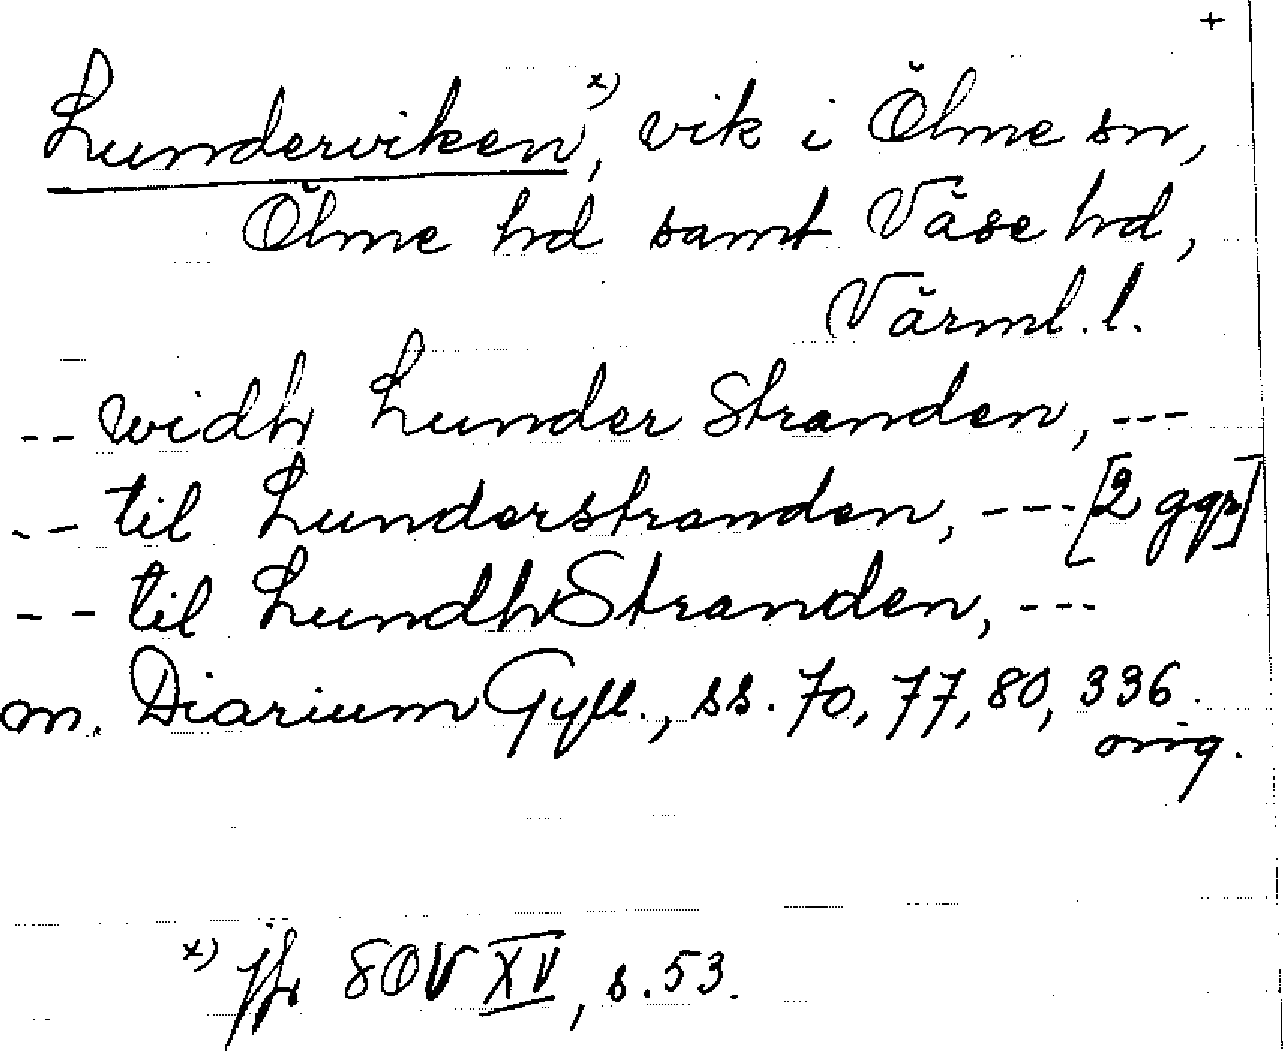 +
Lunderviken x), vik i Ölme sn,
Ölme hd samt Väse hd,
Värml. l.
-- widh Lunder Stranden, ---
-- til Lunderstranden, --- [2 ggr]
-- til LundhStranden, ---
m. Diarium Gyll., ss. 70, 77, 80, 336.
orig.
x) jfr SOV XV, s. 53.